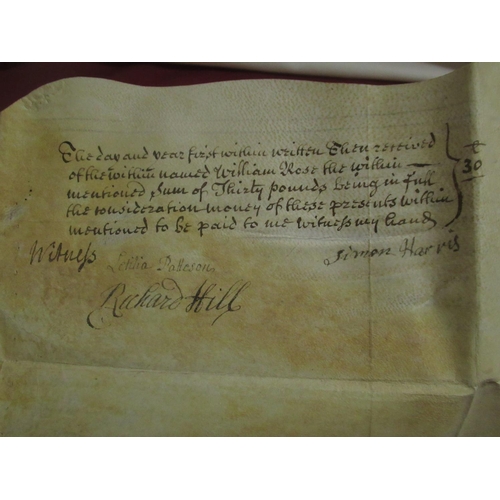 The day and year first within written Then received
of the within named William Rose the within
mentioned Sum of Thirty pounds being in full
the consideration money of these presents within
mentioned to be paid to me witness my hand
£
30
Witness
Simon Harris
Letitia Patteson
Richard Hill